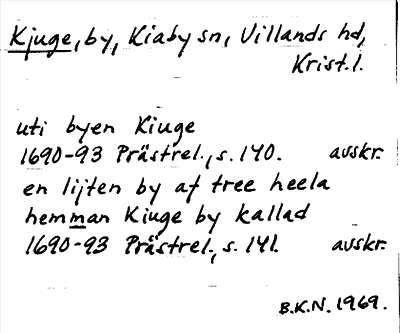 Kjuge, by, Kiaby sn, Villands hd,
Krist. l.
uti byen Kiuge
1690-93 Prästrel., s. 140. avskr.
en lijten by af tree heela
hemman Kiuge by kallad
1690-93 Prästrel., s. 141. avskr.
B.K.N. 1969.